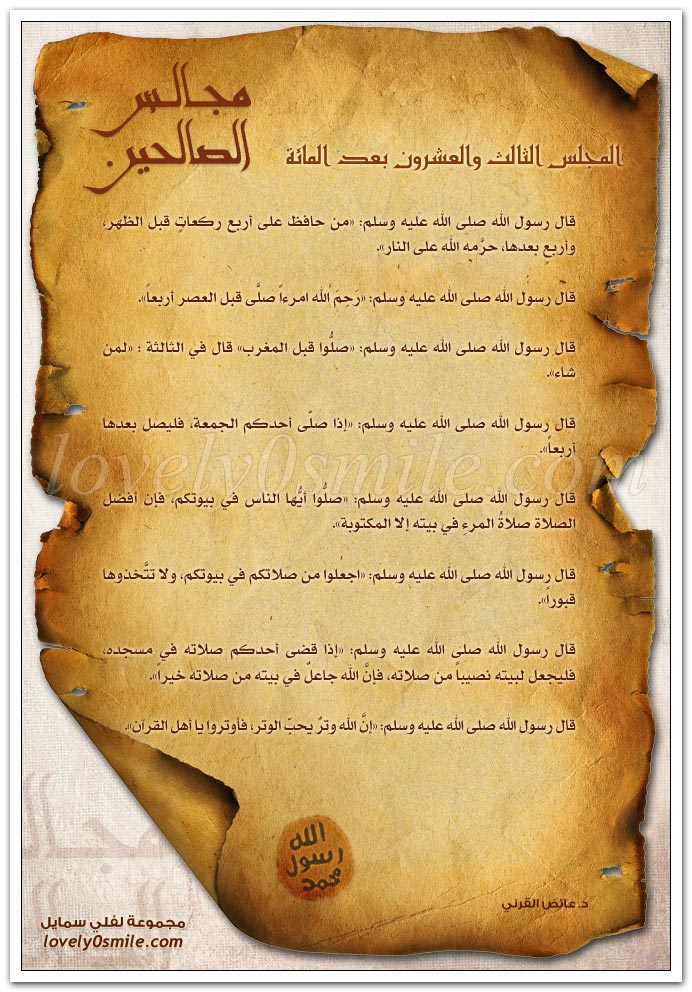 مجالس
الصالحين
المجلس الثالث والعشرون بعد المائة
قال رسول الله صلى الله عليه وسلم: «من حافظ على أربع ركعاتٍ قبل الظهر،
وأربعٍ بعدها، حرَّمه الله على النار».
قال رسول الله صلى الله عليه وسلم: «رَحِمَ الله امرءاً صلَّى قبل العصر أربعاً».
قال رسول الله صلى الله عليه وسلم: «صلُّوا قبل المغرب» قال في الثالثة : «لمن
شاء».
قال رسول الله صلى الله عليه وسلم: «إذا صَلّى أحدكم الجمعة، فليصل بعدها
أربعاً».
قال رسول الله صلى الله عليه وسلم: «صلُّوا أيُّها الناس في بيوتكم، فإن أفضل
الصلاة صلاةُ المرءِ في بيته إلا المكتوبة».
قال رسول الله صلى الله عليه وسلم: «اجعلوا من صلاتكم في بيوتكم، ولا تتَّخذوها
قبوراً».
قال رسول الله صلى الله عليه وسلم: «إذا قضى أحدكم صلاته في مسجده،
فليجعل لبيته نصيباً من صلاته، فإنَّ الله جاعلٌ في بيته من صلاته خيراً».
قال رسول الله صلى الله عليه وسلم: «إنَّ الله وترٌ يحبّ الوتر، فأوتروا يا أهل القرآن».
lovely0smile.com
الله
رسول
محمد
د. عائض القرني
مجموعة لفلي سمايل
lovely0smile.com